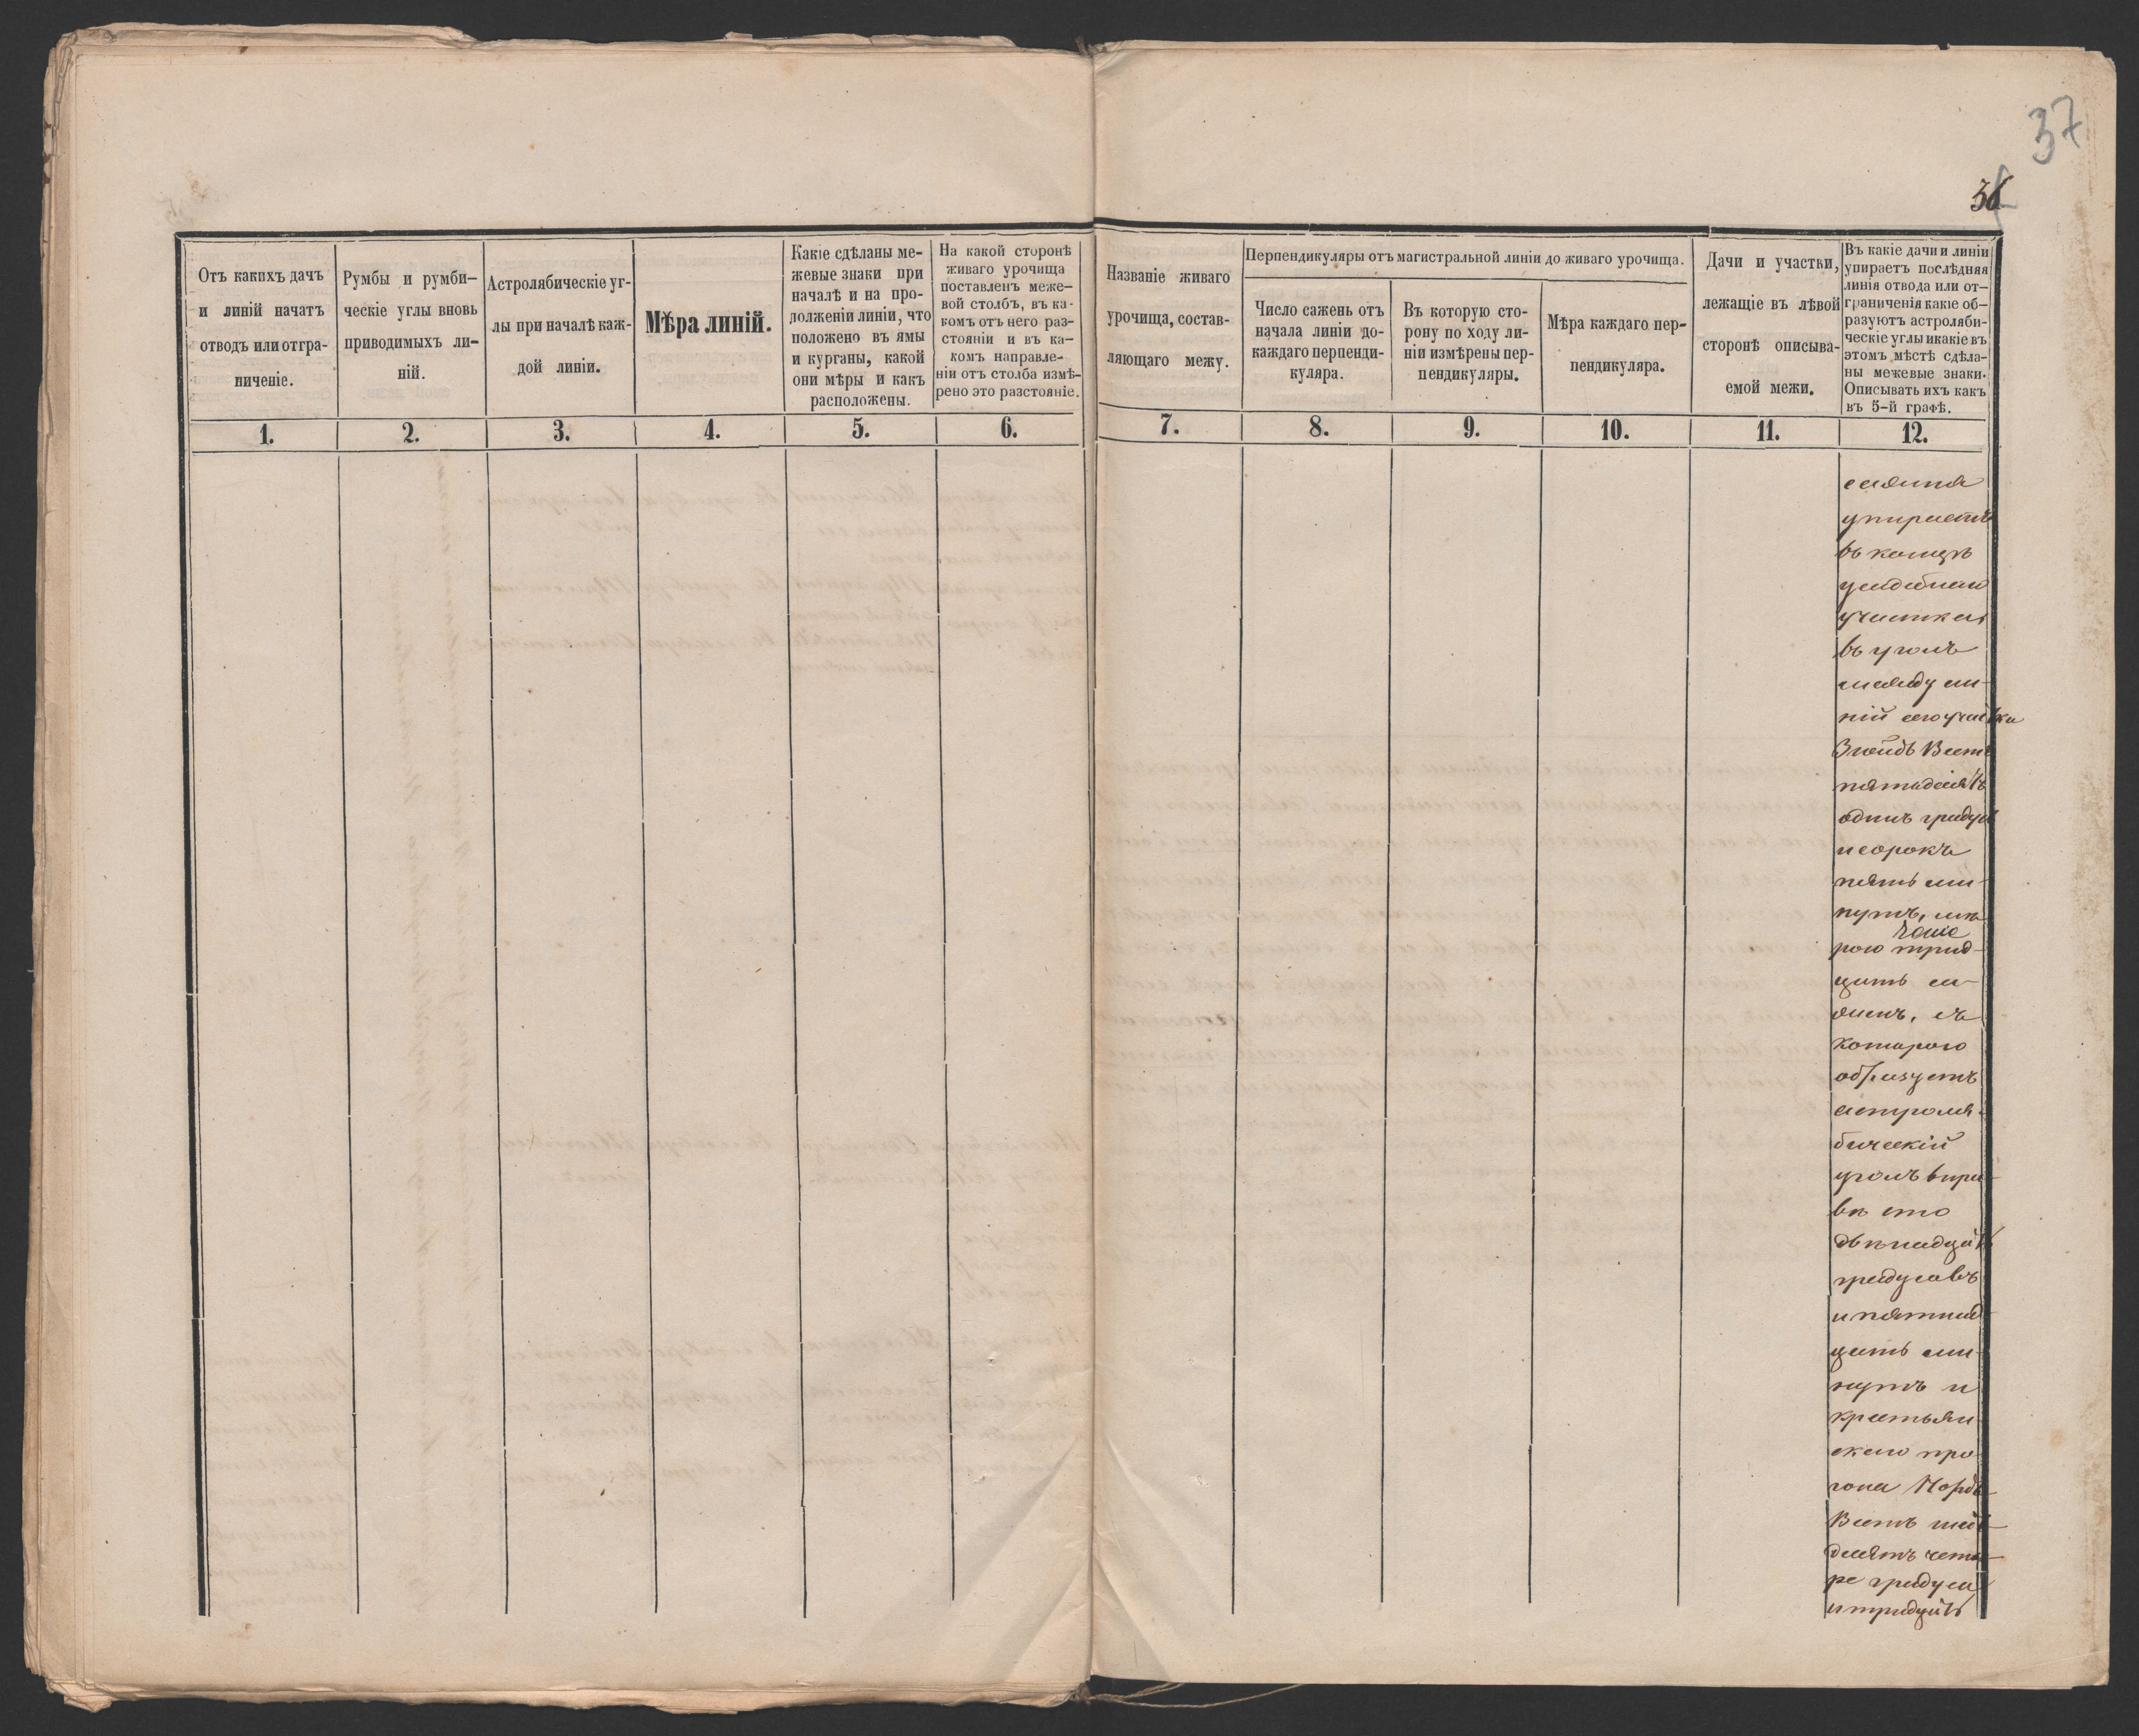 37
36
Отъ какихъ дачъ
и линій начатъ
отводъ или отгра-
ниченіе.
Румбы и румби-
ческіе углы вновь
приводимыхъ ли-
ній.
Астролябическіе уг-
лы при началѣ каж-
дой линіи.
Мѣра линій.
Какіе сдѣланы ме-
жевые знаки при
началѣ и на про-
долженіи линіи, что
положено въ ямы
и курганы, какой
они мѣры и какъ
расположены.
На какой сторонѣ
живаго урочища
поставленъ меже-
вой столбъ, въ ка-
комъ отъ него раз-
стояніи и въ ка-
комъ направле-
ніи отъ столба измѣ-
рено это разстояніе.
Названіе живаго
урочища, состав-
ляющаго межу.
Перпендикуляры отъ магистральной линіи до живаго урочища.
Число сажень отъ
начала линіи до-
каждаго перпенди-
куляра.
Въ которую сто-
рону по ходу ли-
ніи измѣрены пер-
пендикуляры.
Мѣра каждаго пер-
пендикуляра.
Дачи и участки,
лежащіе въ лѣвой
сторонѣ описыва-
емой межи.
Въ какіе дачи и линіи
упираетъ послѣдняя
линія отвода или от-
граниченія какіе об-
разуютъ астроляби-
ческіе углы и какіе въ
этомъ мѣстѣ сдѣла-
ны межевые знаки.
Описывать ихъ какъ
въ 5-й графѣ.
1.
2.
3.
4.
5.
6.
7.
8.
9.
10.
11.
12.
упираетъ
въ конецъ
усадебнаго
участка
въ уголъ
между ли-
ній сего участка
Зюйдъ Вестъ
пятьдесятъ
одинъ градусъ
и сорокъ
пять ми-
нутъ, мѣ
рою трид-
цать са-
жень, съ
котораго
образуетъ
астроля-
бическій
уголъ впра-
вѣ сто
двѣнадцать
градусовъ
и пятнад-
цать ми-
нутъ и
крестьян-
скаго про-
гона Нордъ
Вестъ шесть
десятъ четы-
ре градуса
и тридцать